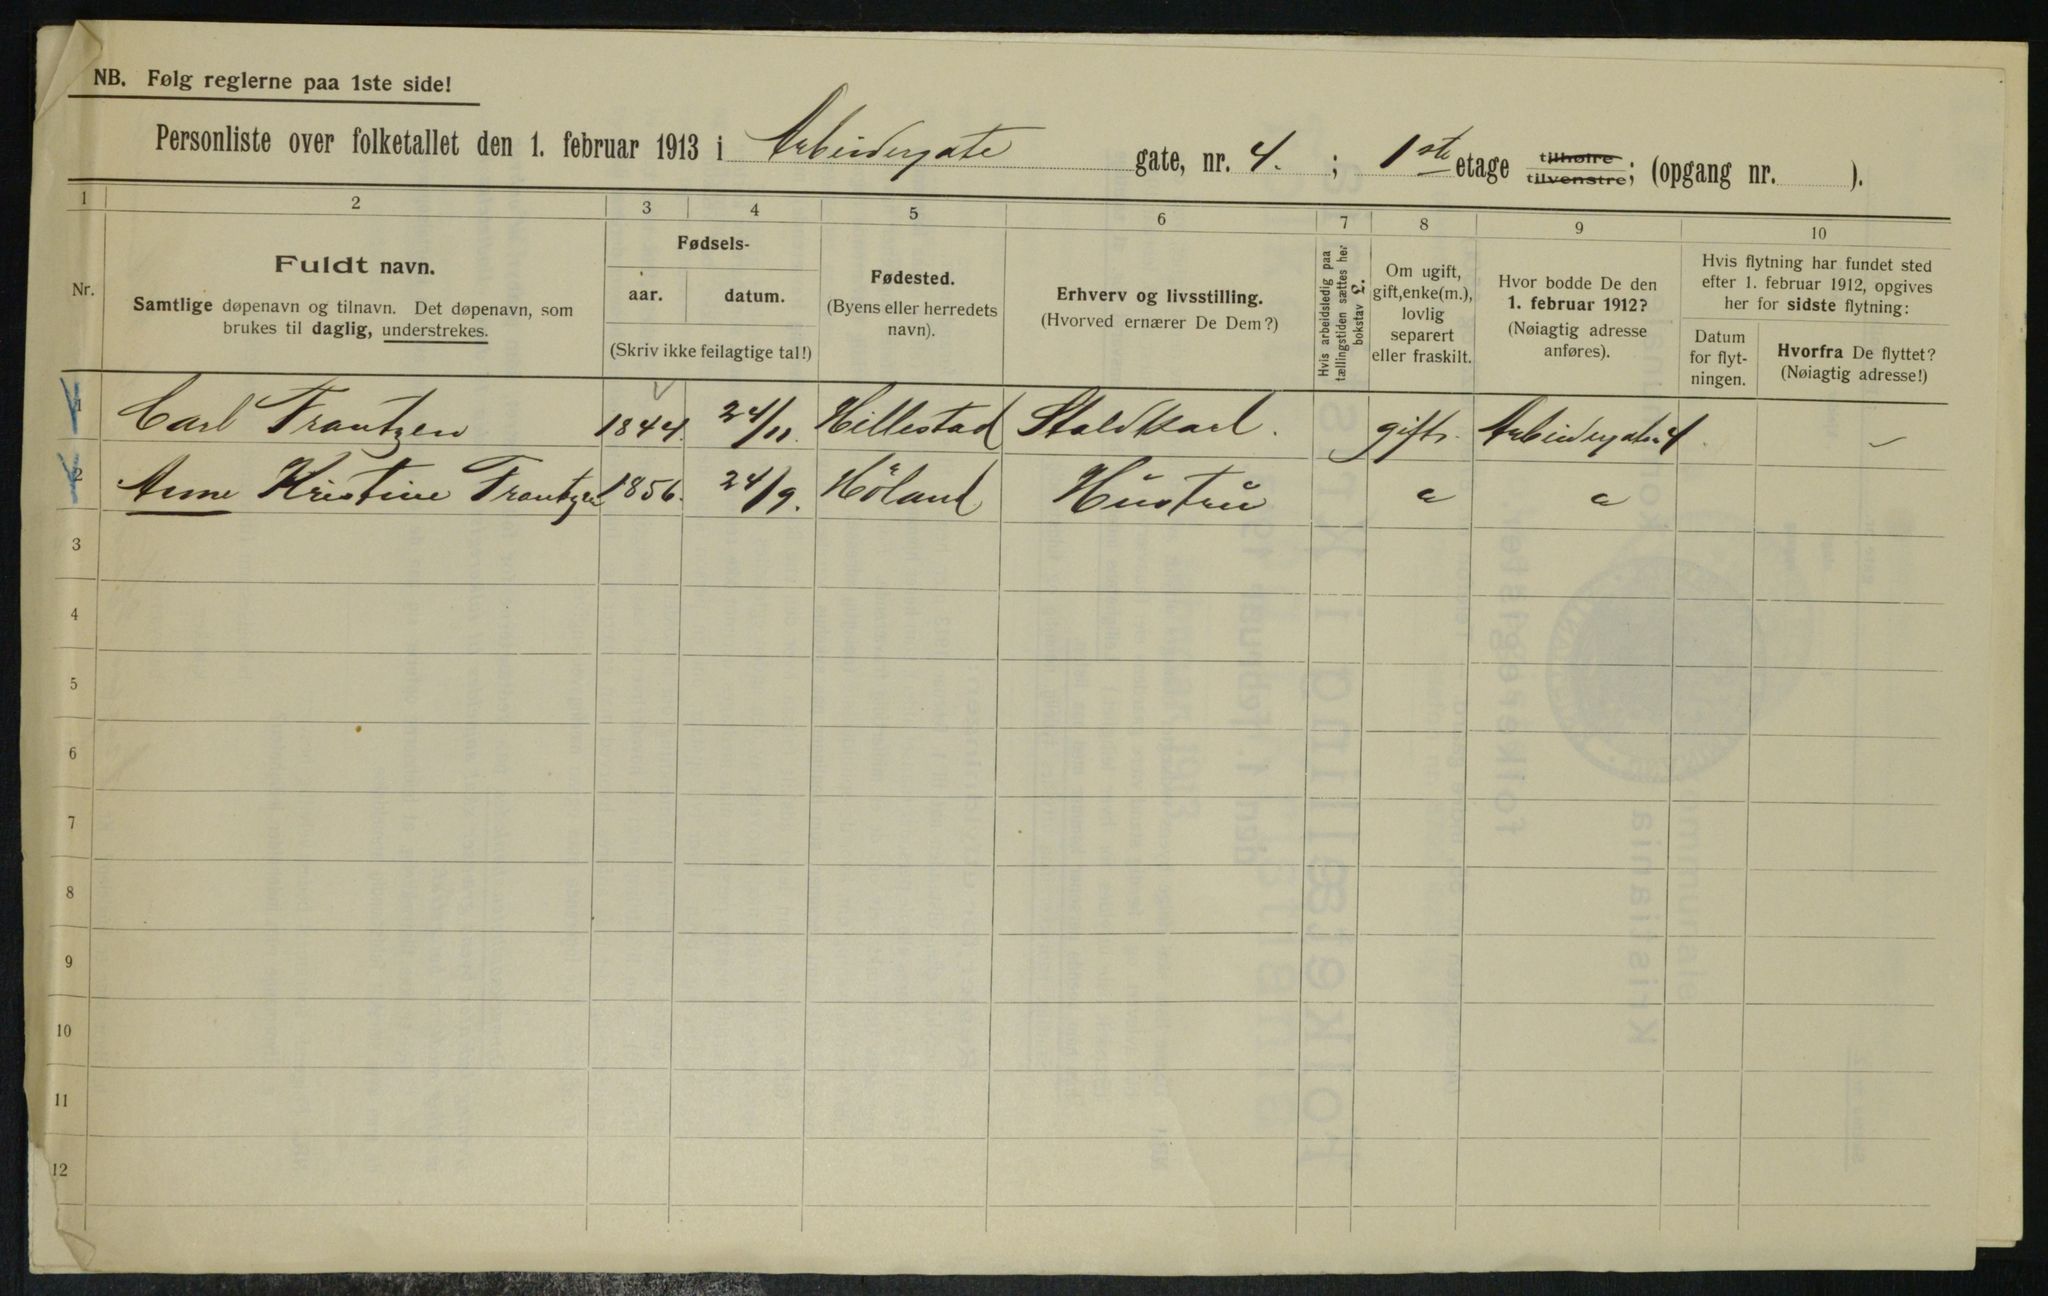 NB. Følg reglerne paa 1ste side!
Personliste over folketallet den 1. februar 1913 i Arbeidergate gate, nr. 4. ; 1ste etage tilhøire tilvenstre; (opgang nr. ).
1 2 3 4 5 6 7 8 9 10
Nr.
Fuldt navn.
Samtlige døpenavn og tilnavn. Det døpenavn, som
brukes til daglig, understrekes.
Fødsels-
aar. datum.
(Skriv ikke feilagtige tal!)
Fødested.
(Byens eller herredets
navn).
Erhverv og livsstilling.
(Hvorved ernærer De Dem?)
Hvis arbeidsledig paa
tællingstiden sættes her
bokstav L.
Om ugift,
gift, enke(m.),
lovlig
separert
eller fraskilt.
Hvor bodde De den
1. februar 1912?
(Nøiagtig adresse
anføres).
Hvis flytning har fundet sted
efter 1. februar 1912, opgives
her for sidste flytning:
Datum
for flyt-
ningen.
Hvorfra De flyttet?
(Nøiagtig adresse!)
1 Carl Frantzen 1844. 24/11. Hillestad Staldkarl. gift. Arbeidergaten 4. -
2 Anne Kristine Frantzen 1856. 24/9. Høland Hustru " "
3
4
5
6
7
8
9
10
11
12